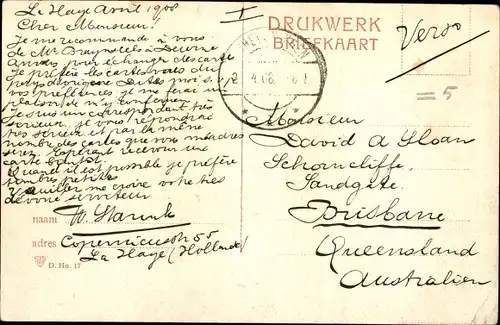 La Haye Avril 1908
Cher Monsieur!
Je me recommande à vous
de Mr Bruynseels à Deurne
Anvers, pour échanger des cartes
Je préfère les cartes vues du
pays d'origine. Dites moi s.v.
vos préférences, je me ferai un
plaisir de m'y conformer.
Je suis un correspondant très
sérieux, je vous répondrai
très sérieux et par la même
nombre des cartes que vous m'adres
serez. Espérant recevoir une
carte bientôt.
Quand il est possible je préfère
timbres petites
Veuillez me croire votre très
dévoué serviteur
naam W. Starink
adres Copernicusstr 55
La Haye (Holland)
D. Ho. 17
I
DRUKWERK
BRIEFKAART
Verso
4.08
= 5
Monsieur
David A Sloan
Schorncliffe.
Sandgate.
Brisbane
Queensland
Australien